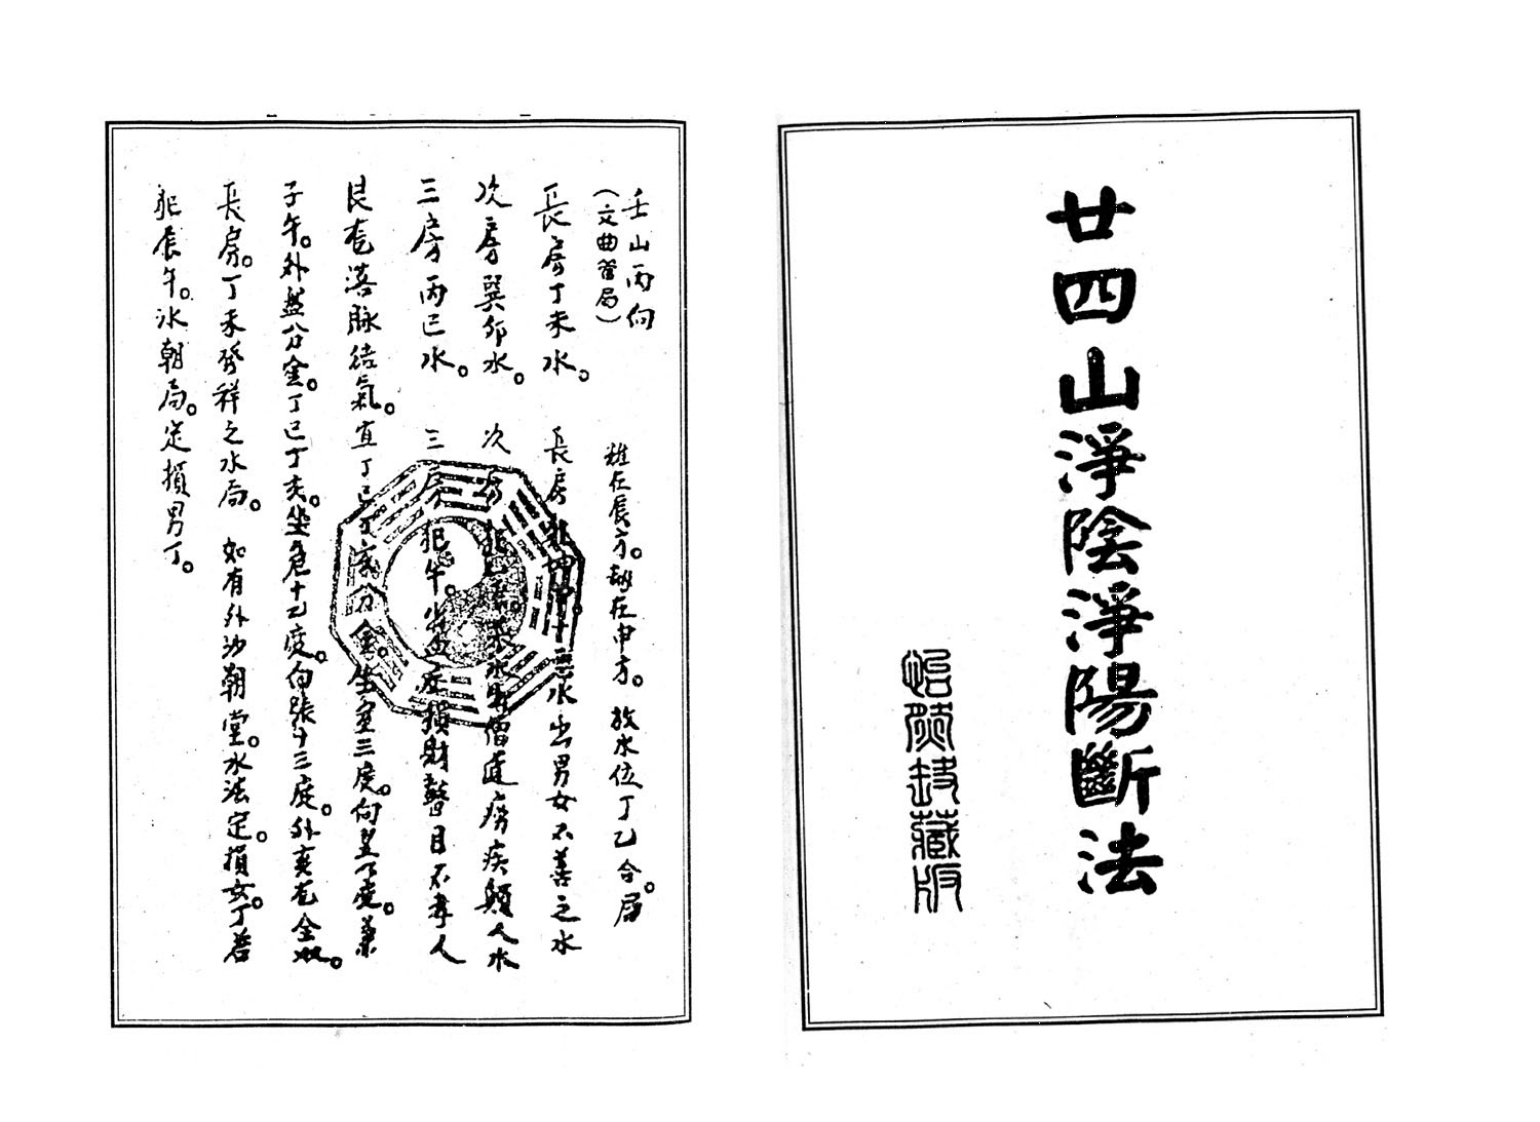 廿四山淨陰淨陽斷法
怡陵封藏版
壬山丙向
(文曲管局)
雄在辰方。劫在申方。放水位丁乙合局。
長房丁未水。長房犯十惡水出男女不善之水
次房巽卯水。次房水出僧道癆疾顛人水
三房丙巳水。三房犯午損財瞽目不孝人
艮龍落脉結氣。宜丁巳丁亥分金。坐室三度。向度。兼
子午。外盤分金。丁巳丁亥。坐危十乙度。向張十三度。外亥龍全収。
長房。丁未發祥之水局。如有外沙朝堂。水法定。損女丁若
犯辰午。水朝局。定損男丁。